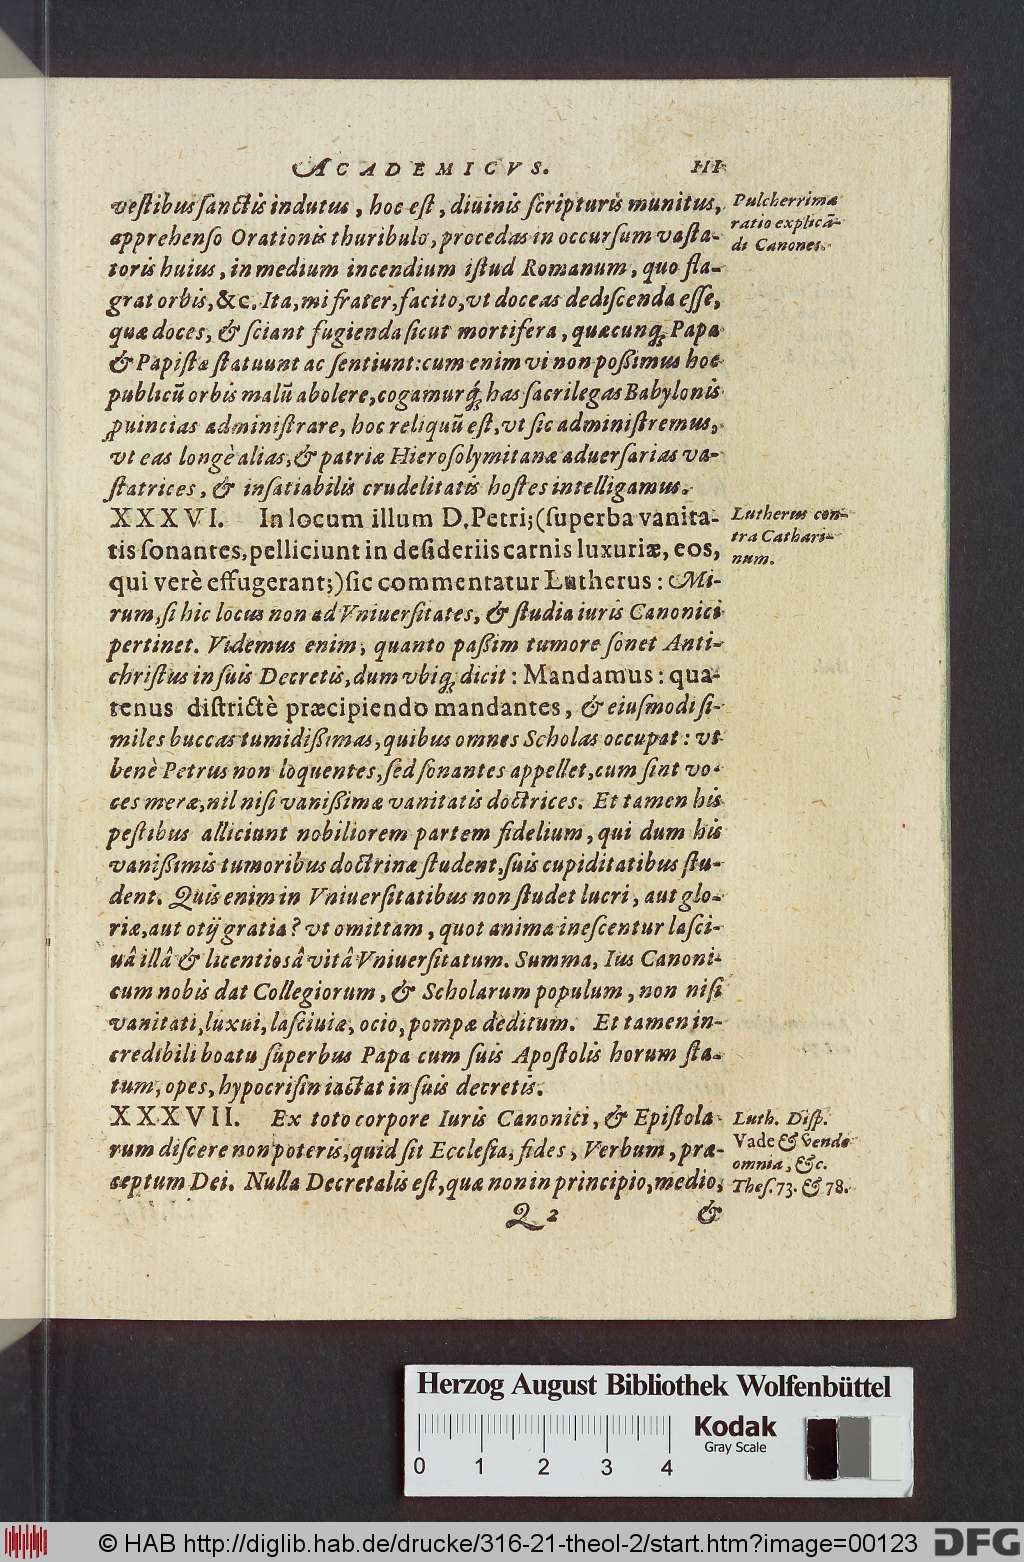 ACADEMICVS. 111
vestibus sanctis indutus, hoc est, diuinis scripturis munitus,
apprehenso Orationis thuribulo, procedas in occursum vasta-
toris huius, in medium incendium istud Romanum, quo fla-
grat orbis, &c. Ita, mi frater, facito, vt doceas dediscenda esse,
quæ doces, & sciant fugienda sicut mortifera, quæcunq; Papa
& Papistæ statuunt ac sentiunt: cum enim vi non poßimus hoc
publicũ orbis malũ abolere, cogamurq́; has sacrilegas Babylonis
ꝓuincias administrare, hoc reliquũ est, vt sic administremus,
vt eas longè alias, & patriæ Hierosolymitanæ aduersarias va-
statrices, & insatiabilis crudelitatis hostes intelligamus.
Pulcherrima
ratio explicā-
di Canones.
XXXVI. In locum illum D. Petri; (superba vanita-
tis sonantes, pelliciunt in desideriis carnis luxuriæ, eos,
qui verè effugerant;) sic commentatur Lutherus: Mi-
rum, si hic locus non ad Vniuersitates, & studia iuris Canonici
pertinet. Videmus enim, quanto paßim tumore sonet Anti-
christus in suis Decretis, dum vbiq; dicit: Mandamus: qua-
tenus districtè præcipiendo mandantes, & eiusmodi si-
miles buccas tumidißimas, quibus omnes Scholas occupat: vt
benè Petrus non loquentes, sed sonantes appellet, cum sint vo-
ces meræ, nil nisi vanißimæ vanitatis doctrices. Et tamen his
pestibus alliciunt nobiliorem partem fidelium, qui dum his
vanißimis tumoribus doctrinæ student, suis cupiditatibus stu-
dent. Quis enim in Vniuersitatibus non studet lucri, aut glo-
riæ, aut otij gratia? vt omittam, quot animæ inescentur lasci-
uâ illâ & licentiosâ vitâ Vniuersitatum. Summa, Ius Canoni-
cum nobis dat Collegiorum, & Scholarum populum, non nisi
vanitati, luxui, lasciuiæ, ocio, pompæ deditum. Et tamen in-
credibili boatu superbus Papa cum suis Apostolis horum sta-
tum, opes, hypocrisin iactat in suis decretis.
Lutherus con-
tra Cathari-
num.
XXXVII. Ex toto corpore Iuris Canonici, & Epistola-
rum discere non poteris, quid sit Ecclesia, fides, Verbum, præ-
ceptum Dei. Nulla Decretalis est, quæ non in principio, medio,
Luth. Disp.
Vade & vende
omnia, &c.
Thes. 73. & 78.
Q 2 &
Herzog August Bibliothek Wolfenbüttel
Kodak
Gray Scale
0 1 2 3 4
© HAB http://diglib.hab.de/drucke/316-21-theol-2/start.htm?image=00123
DFG